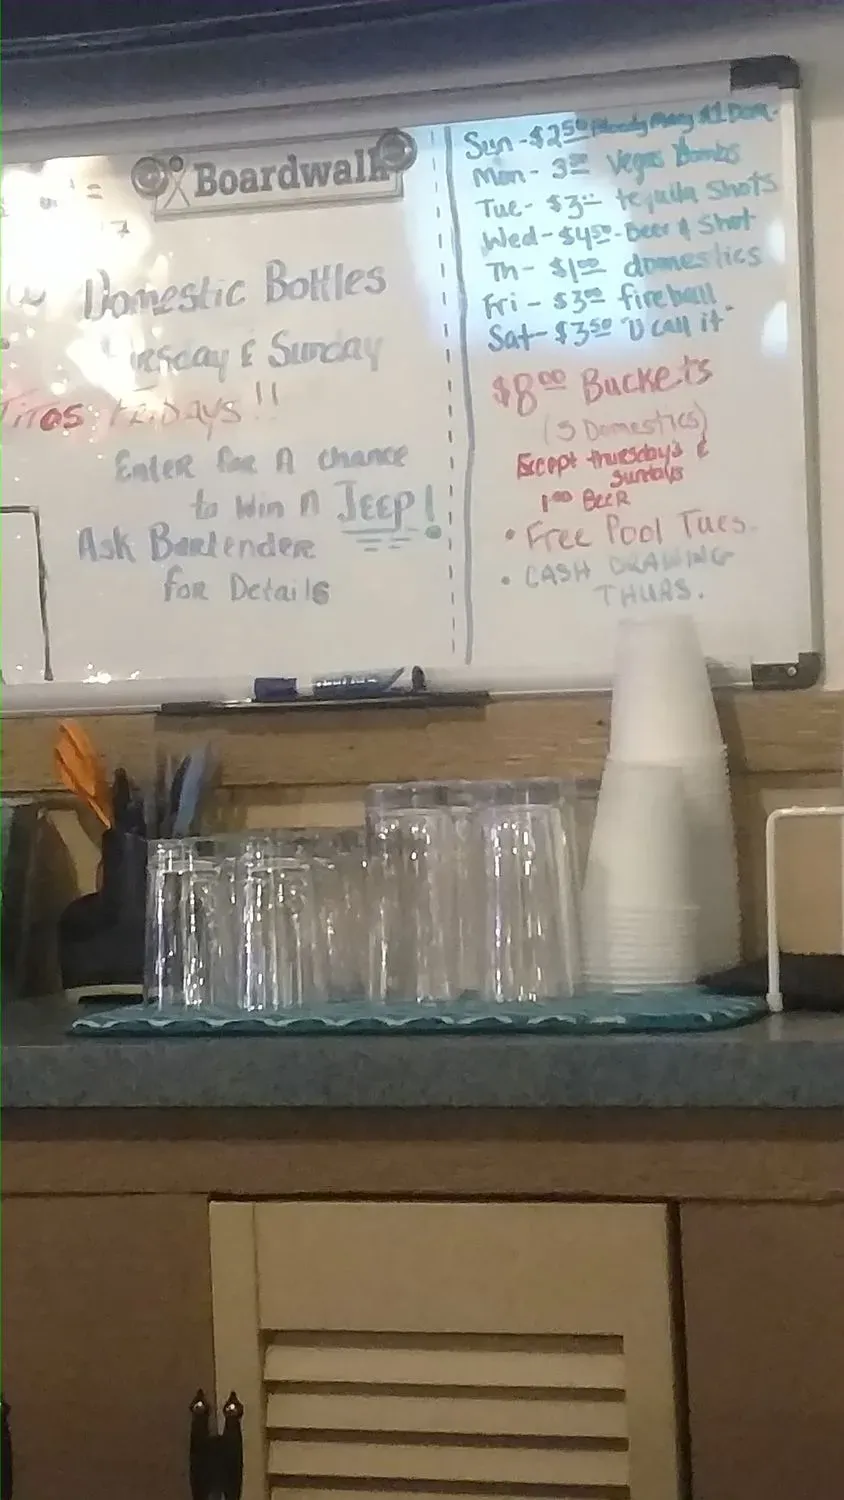 Boardwalk
Domestic Bottles
& Sunday
Titos FRIDAYS!!
Enter for A chance
to Win A JEEP!
Ask Bartender
for Details
Sun-$2.50 Bloody Mary $1 Dom.
Mon- 3.00 Vegas Bombs
Tue- $3.00 tequila Shots
Wed-$4.50-Beer & Shot
Th- $1.00 domestics
Fri- $3.00 fireball
Sat-$3.50 "U call it"
$8.00 Buckets
(5 Domestics)
Except thursday's &
Sundays
1.00 BEER
• Free Pool Tues.
• CASH DRAWING
THURS.